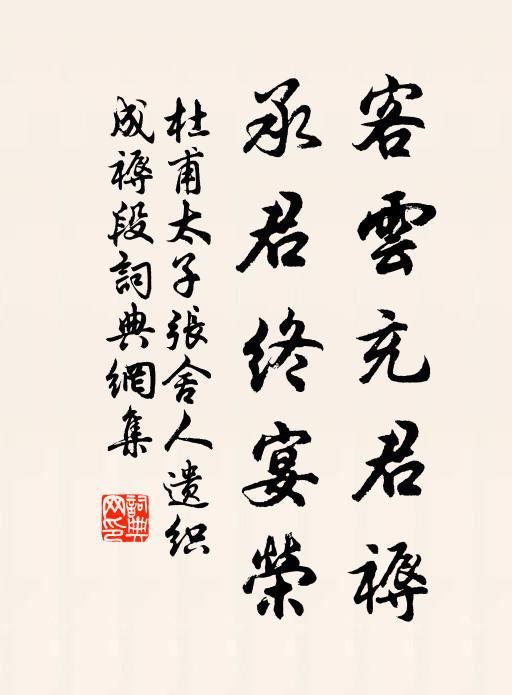 客雲充君褥
承君終宴榮
杜甫太子張舍人遺织
成褥段詞典網集
詞典网印